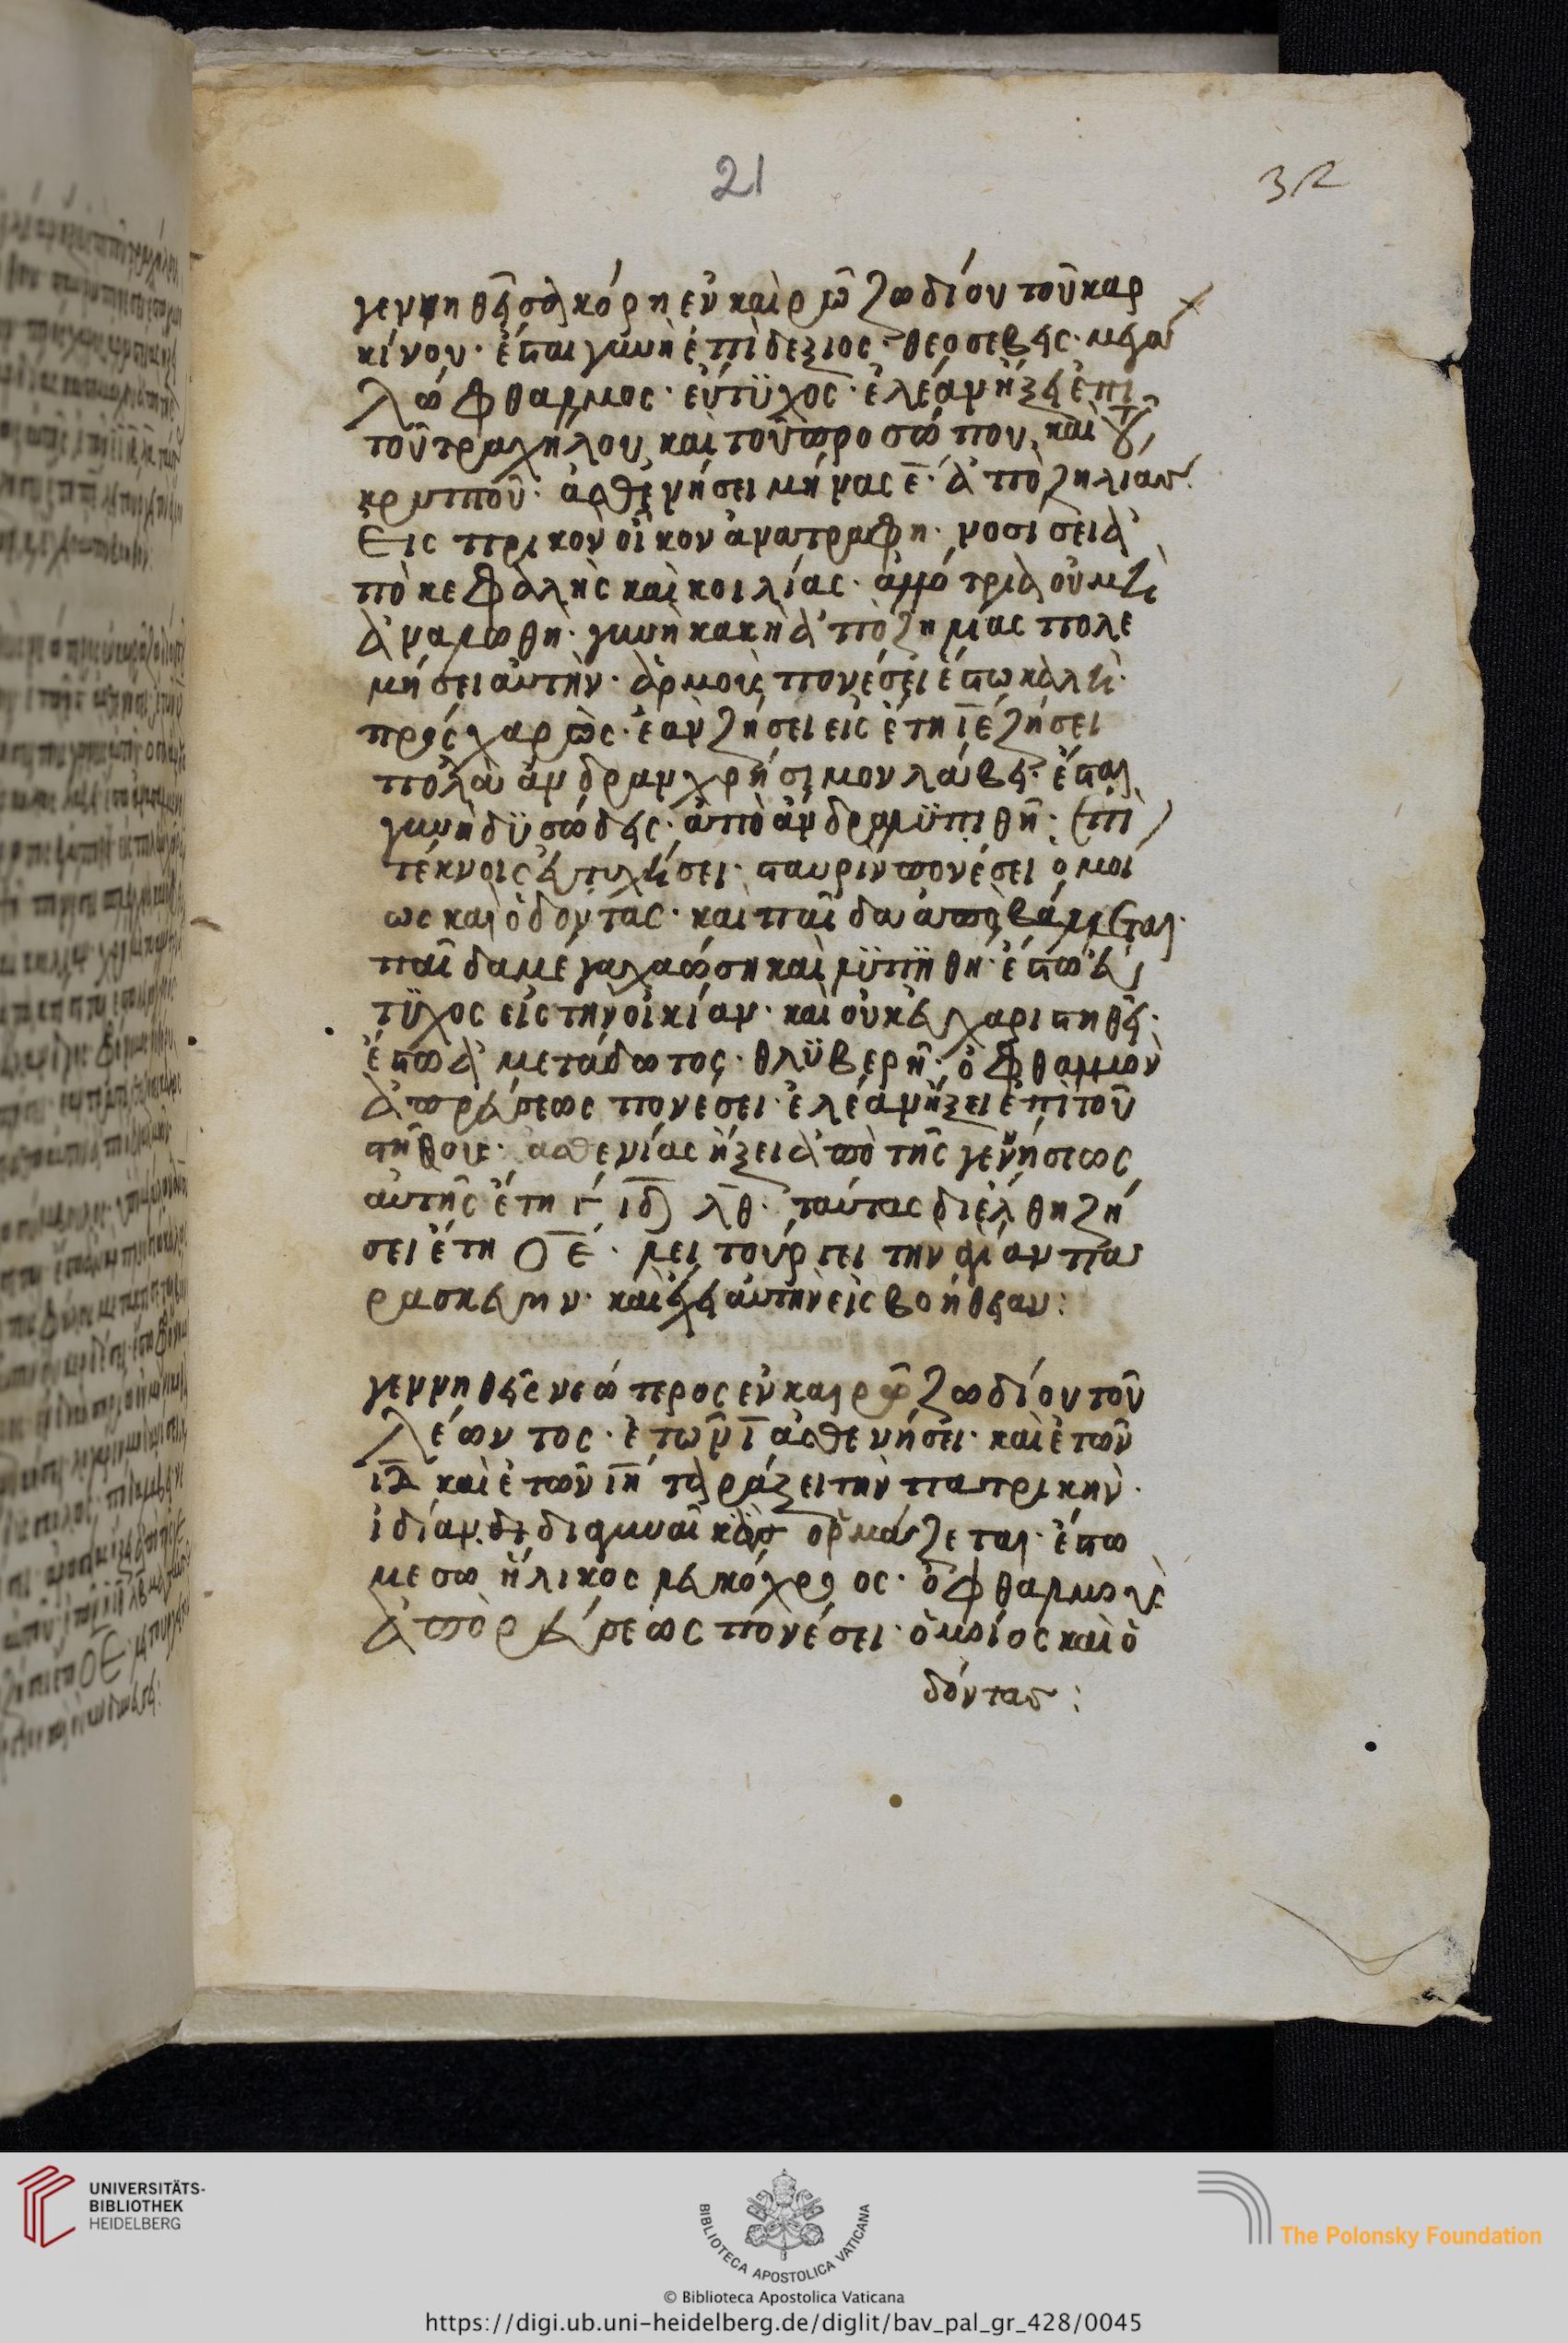 21
32
γεννηθεῖσα κόρη ἐν καὶρῶ ζωδίου τοῦ καρ
κίνου· ἔσται γυνὴ ἐπὶδεξιος· θεοσεβεῖς· μεγα
λώφθαλμος· εὐτϋχος· ἐλέαν ἥξει ἐπι
τοῦ τραχήλου καὶ τοῦ προσώπου, καὶ τοῦ
κρυπτοῦ· ἀσθενήσει μήνας ε̄· ἀπὸ ζηλίας
Εἰς κον οἶκον ἀνατραφη· νοσι σει ἀ
πὸ κεφαλῆς καὶ κοιλίας· οὐ μὴ
γυνὴ κακὴ ἀπὸ ζημίας πολε
μήσει αὐτὴν· ἁρμοὺς πονέσει ἔστω καλὴ·
πρός χαρ ἐαν ζήσει εἰς ἔτη ῑε̄ ζήσει
πολὰ ἄνδραν χρήσιμον λάβει· ἔσται
γυνὴ δϋσώδεις· ἀπὸ ἄνδρα λϋπιθῆ· ἐπὶ
τέκνοις εὐτυχήσει· πονέσει ὁμοί
ως καὶ ὀδόντας· και παῖδα
παῖδα μεγα καὶ λϋπηθη· ἔστω εὐ
τϋχος εἰς τὴν οἰκίαν· καὶ οὐκ εὐχαριστηθεῖ·
ἔστω ἀμετάδωτος· θλϋβερῆ· ὀφθαλμὸν
ἀπὸ ρεύσεως πονεσει· ἐλέαν ἥξει ἐπὶ τοῦ
στῆθους· ἀσθενίας ἥξει ἀπὸ τῆς γεννήσεως
αὐτῆς ἔτη ιδ λθ· ταύτας διέλθη ζή
σει ἔτη οε̄· λειτούργει την ἁγίαν πα
ρασκευην· καὶ ἔχει αὐτὴν εἰς βοήθειαν:
γεννηθεῖς νεώτερος ἐν καιρῶ ζωδίου τοῦ
λέωντος· ἐτῶν ῑ ἀσθενήσει· καὶ ἐτῶν
ῑδ̄ καὶ ἐτῶν ῑη̄ ταράξει τὴν πατρικὴν·
ἰδίαν· ὁρμάζεται· ἔστω
μεσω ἥλικος λευκόχρους· ὀφθαλμοὺς
ἀπὸ ρεύσεως πονέσει· ὁμοίος καὶ ὀ
δόντας:
UNIVERSITÄTS-
BIBLIOTHEK
HEIDELBERG
BIBLIOTECA APOSTOLICA VATICANA
The Polonsky Foundation
© Biblioteca Apostolica Vaticana
https://digi.ub.uni-heidelberg.de/diglit/bav_pal_gr_428/0045